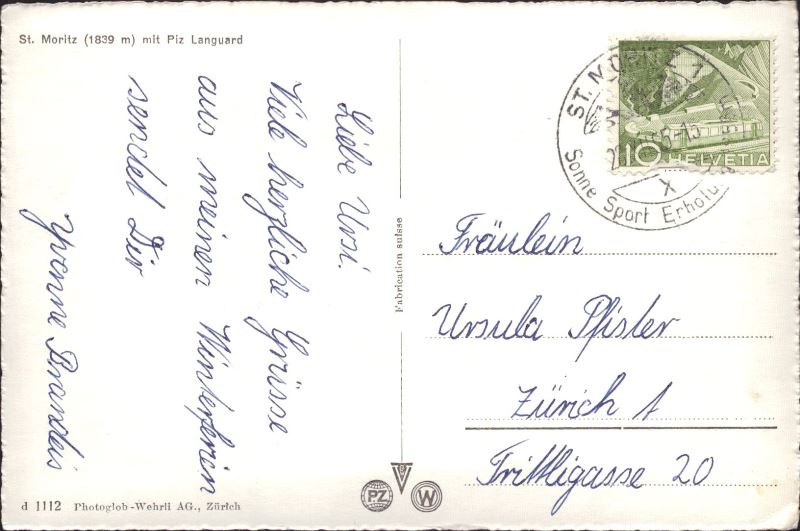 St. Moritz (1839 m) mit Piz Languard
Liebe Ursi!
Viele herzliche Grüsse
aus meinen Winterferien
sendet Dir
Yvonne Brandeis
Fabrication suisse
d 1112 Photoglob-Wehrli AG., Zürich
PZ
W
ST. MORITZ 1
Sonne Sport Erholu
10 HELVETIA
Fräulein
Ursula Pfister
Zürich 1
Trittligasse 20